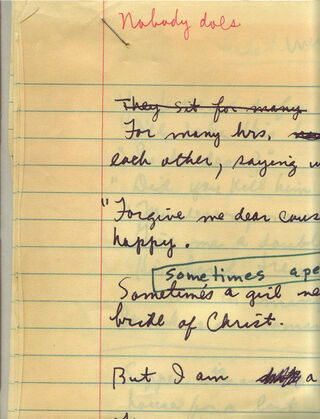 Nobody does
They sit for many
For many hrs,
each other, saying
"Forgive me dear
happy.
sometimes a pe
Sometimes a girl
bride of Christ.
But I am a